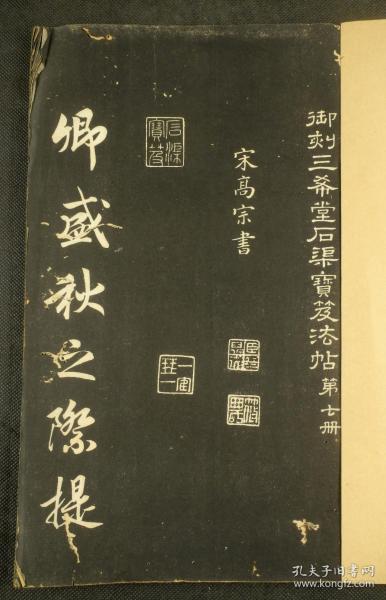 御刻三希堂石渠寶笈法帖 第七冊
宋高宗書
石渠寶笈
卿盛秋之際提
孔夫子旧书网